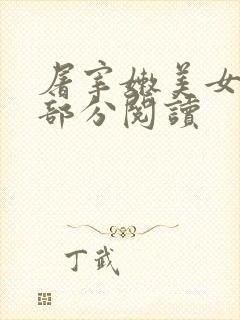 屠宰嫩美女
部分閱讀
丁武